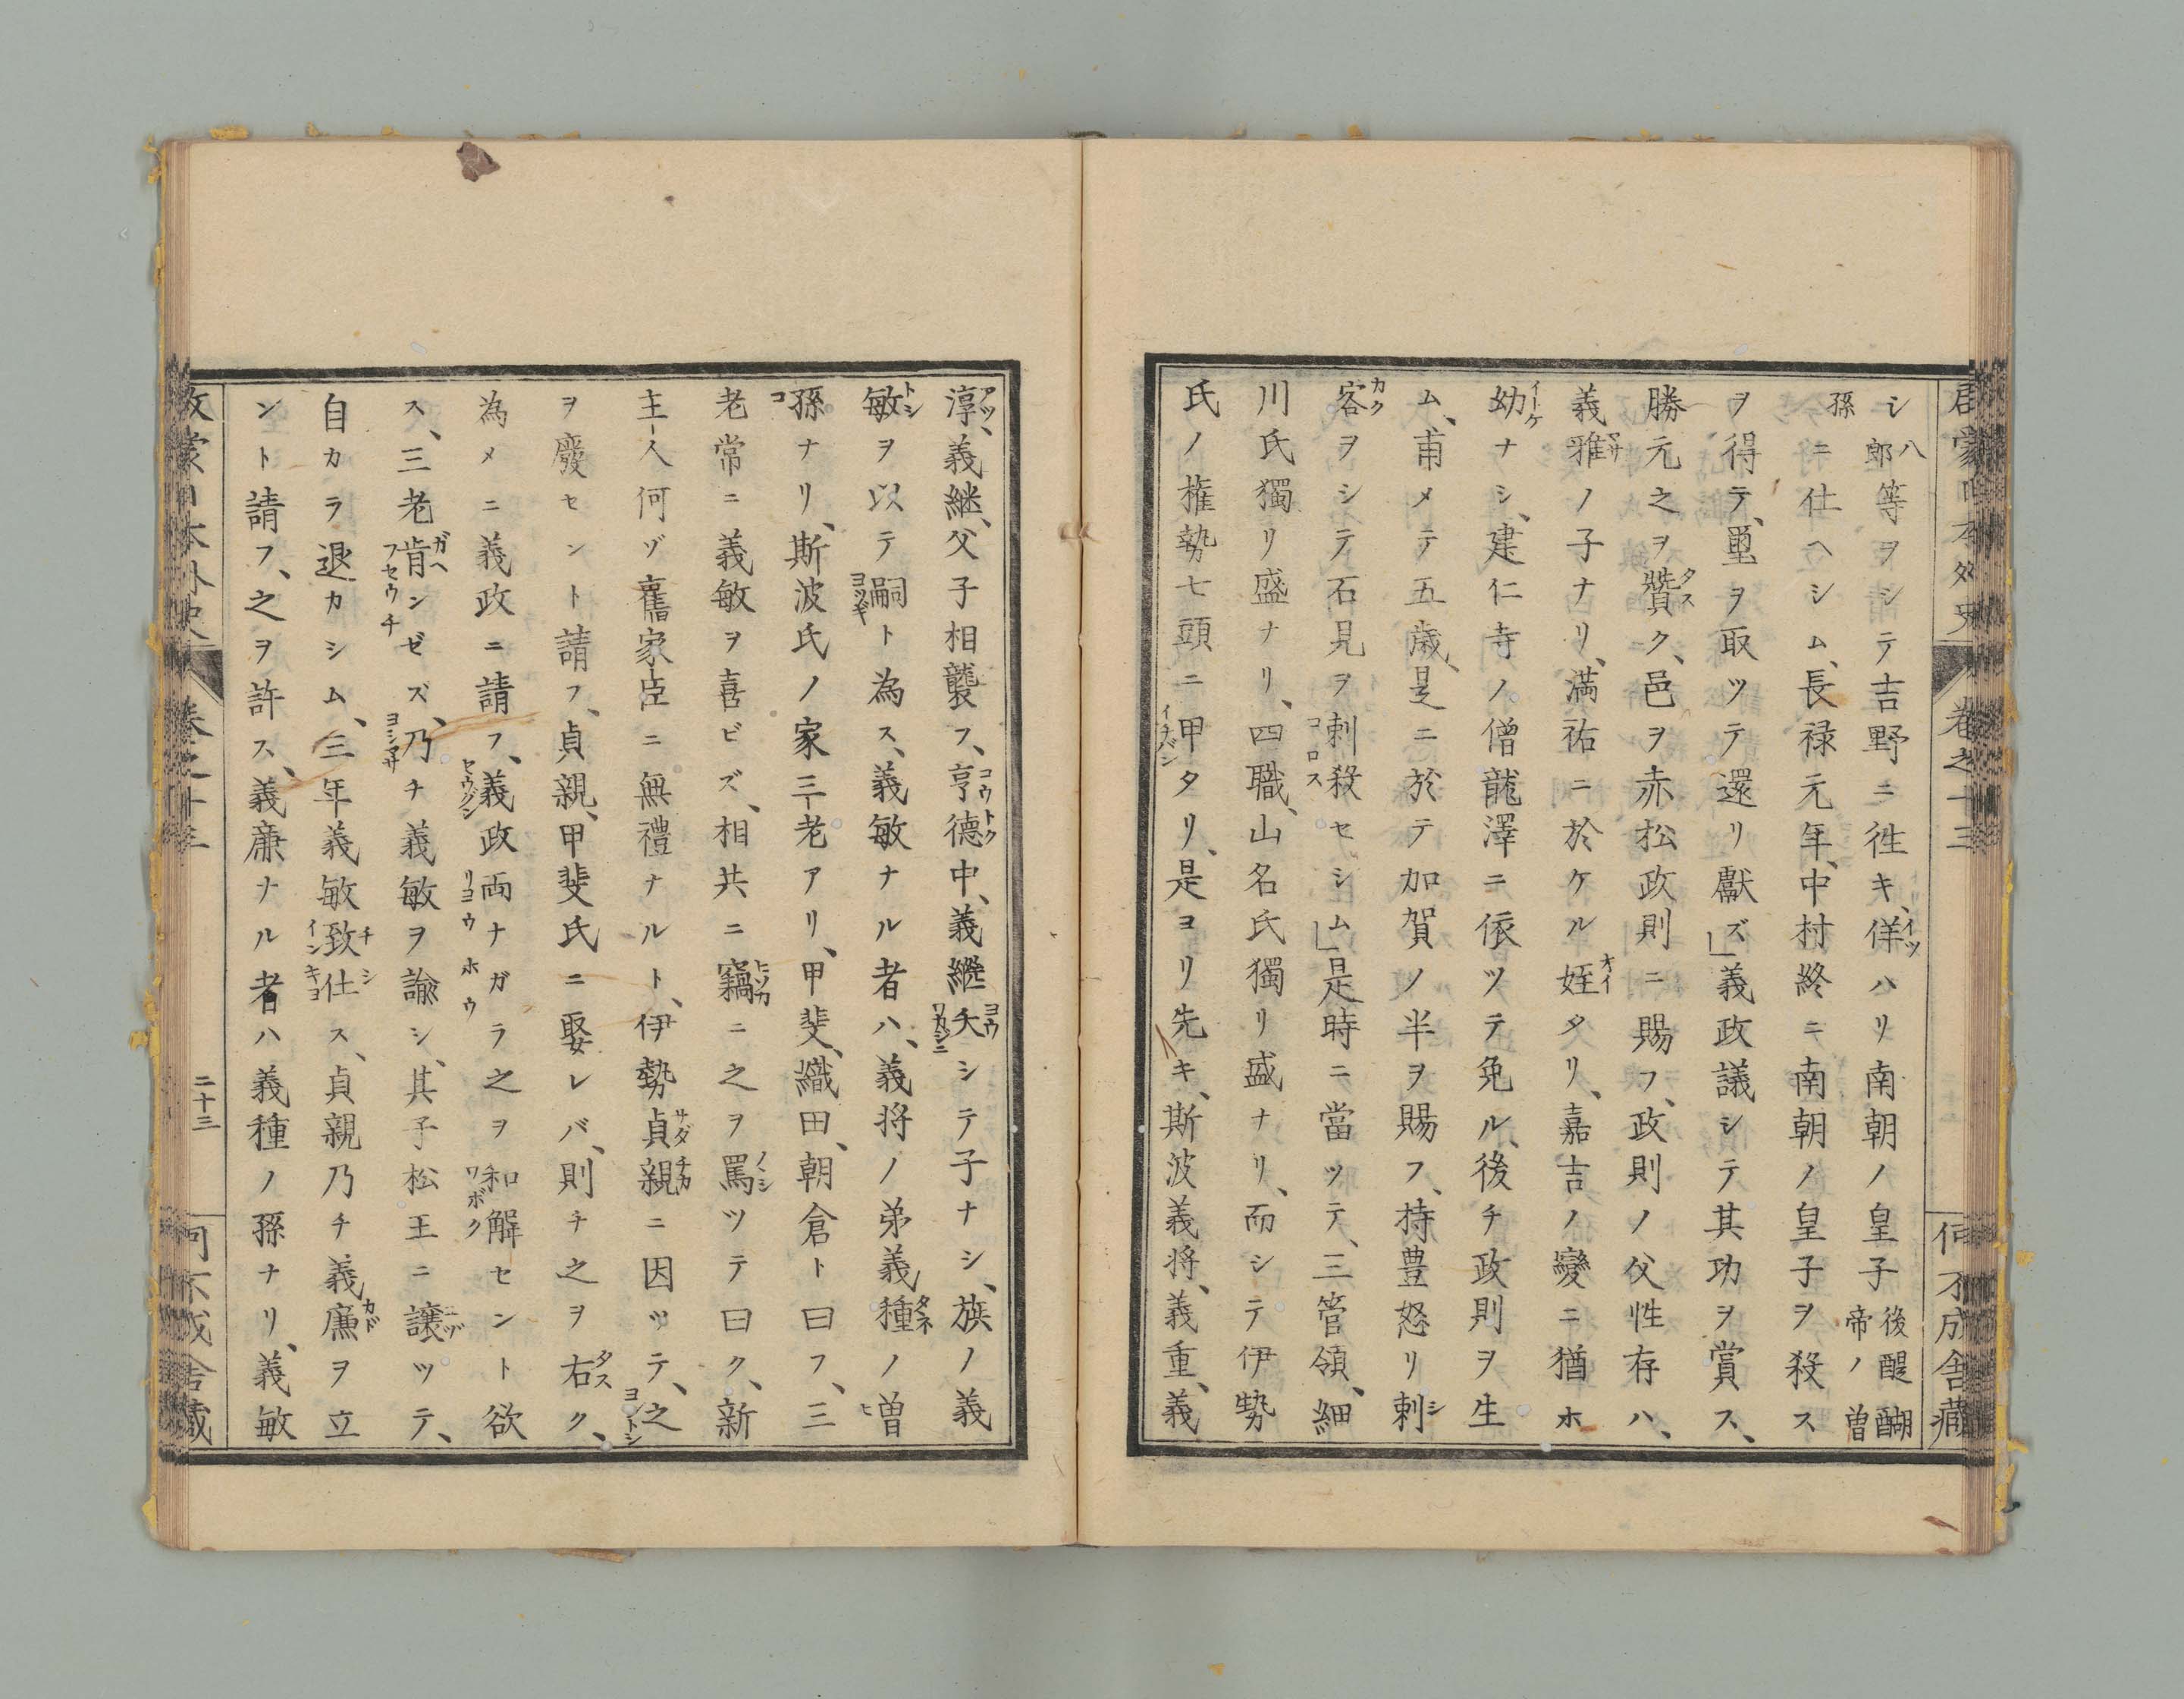 啓蒙日本外史 卷之十三 何不成舎藏
シ郎八等ヲシテ吉野ニ徃キ、佯ハリ南朝ノ皇子後醍醐帝ノ曽
孫ニ仕ヘシム、長禄元年、中村終ニ南朝ノ皇子ヲ殺ス
ヲ得テ、璽ヲ取ツテ還リ獻ズ」義政議シテ其功ヲ賞ス、
勝元之ヲ贊ク、邑ヲ赤松政則ニ賜フ、政則ノ父性存ハ、
義雅ノ子ナリ、滿祐ニ於ケル姪タリ、嘉吉ノ變ニ猶ホ
幼ナシ、建仁寺ノ僧龍澤ニ依ツテ免ル、後チ政則ヲ生
ム、甫メテ五歳、是ニ於テ加賀ノ半ヲ賜フ、持豊怒リ刺
客ヲシテ石見ヲ刺殺セシム」是時ニ當ツテ、三管領、細
川氏獨リ盛ナリ、四職、山名氏獨リ盛ナリ、而シテ伊勢
氏ノ権勢七頭ニ甲タリ、是ヨリ先キ、斯波義将、義重、義
淳、義継、父子相襲フ、亨德中、義縱夭シテ子ナシ、族ノ義
敏ヲ以テ嗣ト為ス、義敏ナル者ハ、義将ノ弟義種ノ曽
孫ナリ、斯波氏ノ家三老アリ、甲斐、織田、朝倉ト曰フ、三
老常ニ義敏ヲ喜ビズ、相共ニ竊ニ之ヲ罵ツテ曰ク、新
主人何ゾ舊家臣ニ無禮ナルト、伊勢貞親ニ因ツテ、之
ヲ廢セント請フ、貞親、甲斐氏ニ娶レバ、則チ之ヲ右ク、
為メニ義政ニ請フ、義政両ナガラ之ヲ和解セント欲
ス、三老肯ンゼズ、乃チ義敏ヲ諭シ、其子松王ニ譲ツテ、
自カラ退カシム、三年義敏致仕ス、貞親乃チ義廉ヲ立
ント請フ、之ヲ許ス、義廉ナル者ハ義種ノ孫ナリ、義敏
啓蒙日本外史 卷之十三 二十三 何不成舎藏